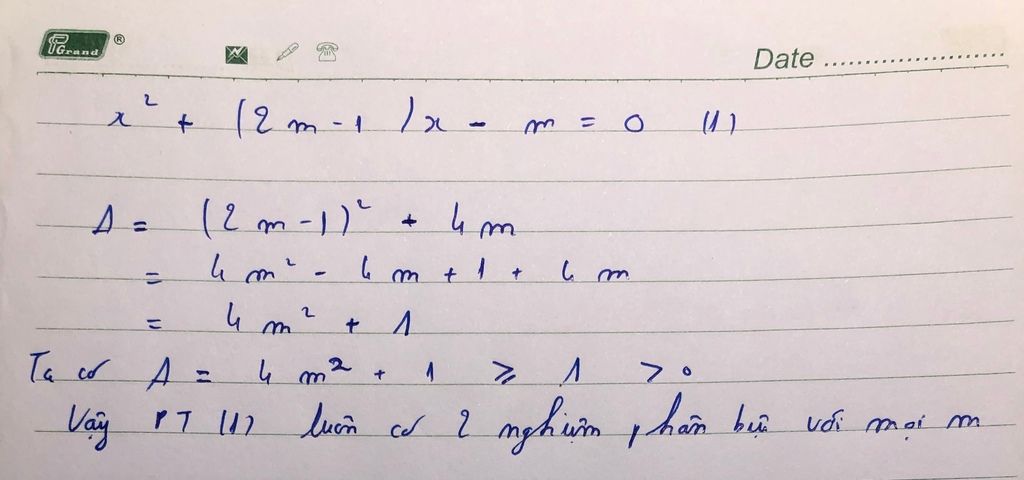 PGrand ®
Date ........................
x² + (2m - 1)x - m = 0 (1)
Δ = (2m - 1)² + 4m
= 4m² - 4m + 1 + 4m
= 4m² + 1
Ta có Δ = 4m² + 1 ⩾ 1 > 0
Vậy PT (1) luôn có 2 nghiệm phân biệt với mọi m